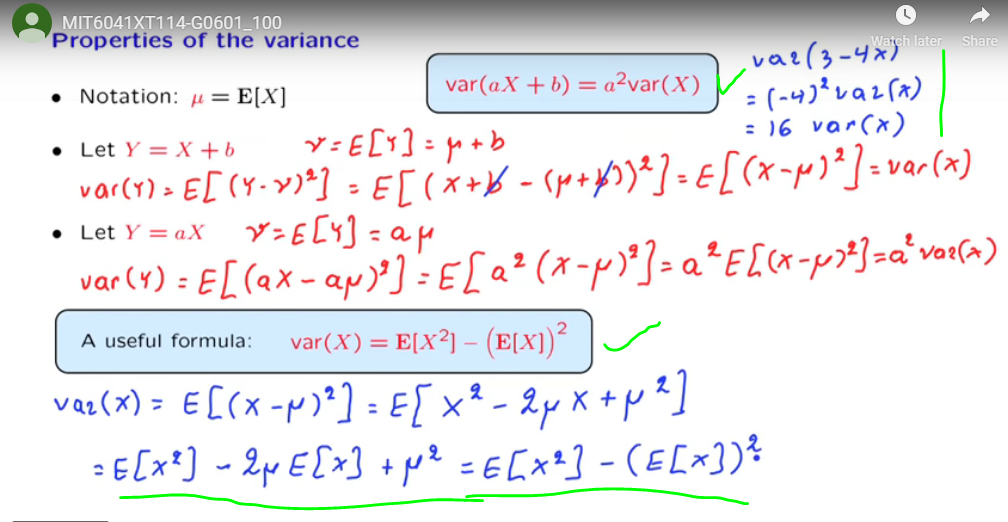 MIT6041XT114-G0601_100
Watch later
Share
Properties of the variance
var(aX + b) = a²var(X)
var(3-4x)
= (-4)² var(x)
= 16 var(x)
• Notation: μ = E[X]
• Let Y = X + b γ = E[Y] = μ + b
var(Y) = E[(Y-γ)²] = E[(x+b - (μ+b))²] = E[(x-μ)²] = var(x)
• Let Y = aX γ = E[Y] = aμ
var(Y) = E[(ax - aμ)²] = E[a² (x-μ)²] = a² E[(x-μ)²] = a² var(x)
A useful formula: var(X) = E[X²] − (E[X])²
var(x) = E[(x-μ)²] = E[x² - 2μx + μ²]
= E[x²] - 2μE[x] + μ² = E[x²] - (E[x])².